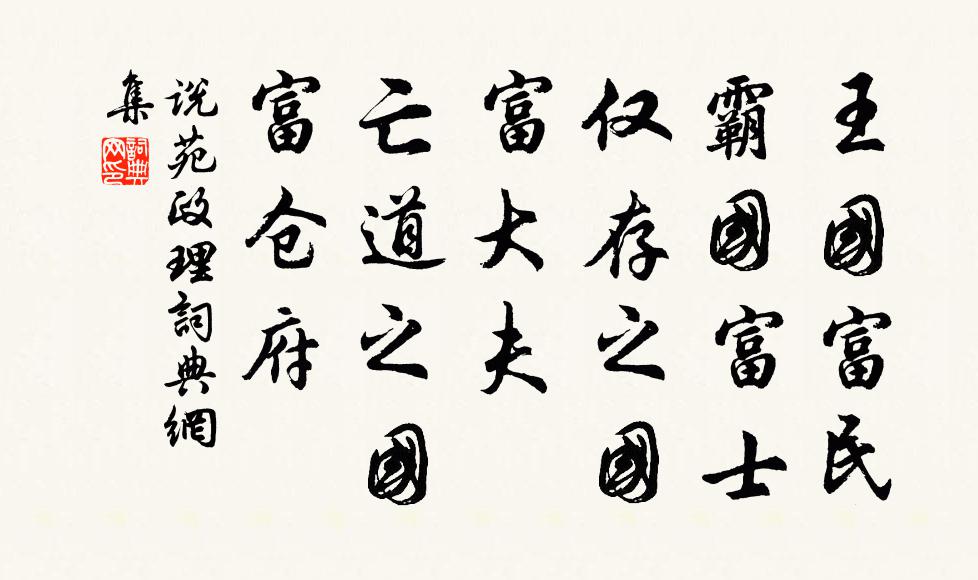 王國富民
霸國富士
仅存之國
富大夫
亡道之國
富仓府
说苑政理詞典網
集
詞典
网印